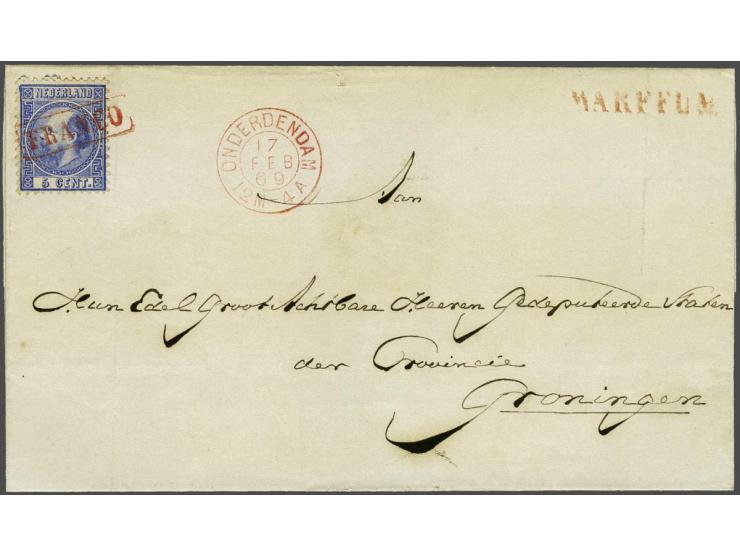 NEDERLAND
FRANCO
5 CENT.
ONDERDENDAM
17
FEB
69
12M-4A
WARFFUM
Aan
Hun Edel Groot Achtbare Heeren Gedeputeerde Staten
der Provincie
Groningen